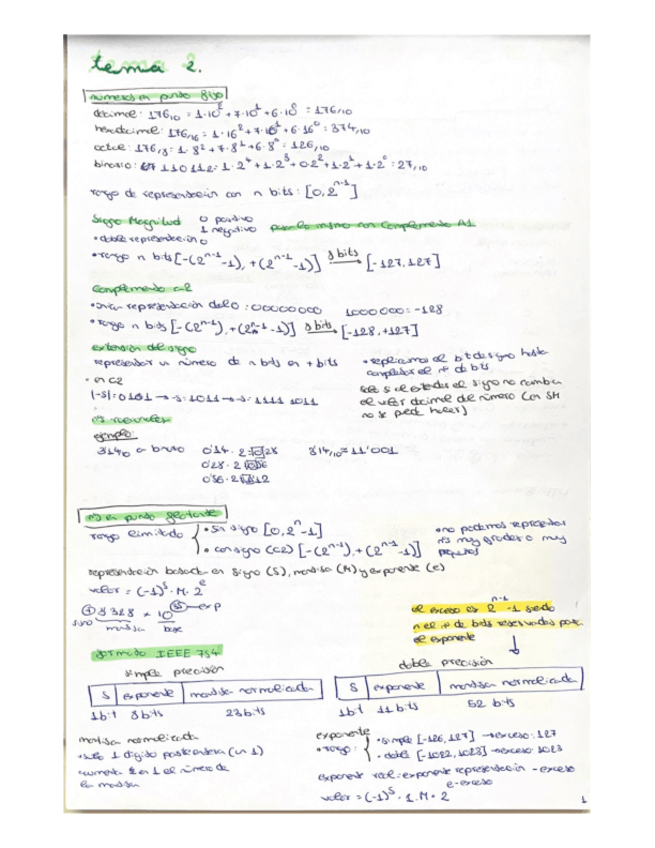 tema 2.
números en punto fijo
decimal: 176₁₀ = 1·10² + 7·10¹ + 6·10⁰ = 176₁₀
hexadecimal: 176₁₆ = 1·16² + 7·16¹ + 6·16⁰ = 374₁₀
octal: 176₈ = 1·8² + 7·8¹ + 6·8⁰ = 126₁₀
binario: 11011₂ = 1·2⁴ + 1·2³ + 0·2² + 1·2¹ + 1·2⁰ = 27₁₀
rango de representación con n bits: [0, 2ⁿ⁻¹]
Signo Magnitud 0 positivo
1 negativo pasa lo mismo con Complemento A1
• doble representación 0
• rango n bits [-(2ⁿ⁻¹-1), +(2ⁿ⁻¹-1)] 8 bits → [-127, 127]
Complemento a 2
• única representación del 0: 00000000 1000000 = -128
• rango n bits [-(2ⁿ⁻¹), +(2ⁿ⁻¹-1)] 8 bits → [-128, +127]
extensión del signo
representar un número de n bits en + bits
• en C2
|-5| = 0101 → -5: 1011 → -5: 1111 1011
• replicamos el bit de signo hasta
completar el nº de bits
el valor decimal del número (en SM
no se puede hacer)
nºs
ejemplo:
3'14₁₀ a binario 0'14 · 2 = 0'28 3'14₁₀ = 11'001
0'28 · 2 = 0'56
0'56 · 2 = 1'12
nºs en punto flotante
rango limitado
• sin signo [0, 2ⁿ-1]
• con signo (C2) [-(2ⁿ⁻¹), +(2ⁿ⁻¹-1)]
• no podemos representar
nºs muy grandes o muy
pequeños
representación basada en signo (S), mantisa (M) y exponente (e)
valor = (-1)ˢ · M · 2ᵉ
exp
signo mantisa base
el exceso es 2ⁿ⁻¹-1 siendo
n el nº de bits reservados para
el exponente
formato IEEE 754
simple precisión
S exponente mantisa normalizada
1 bit 8 bits 23 bits
doble precisión
S exponente mantisa normalizada
1 bit 11 bits 52 bits
mantisa normalizada
• solo 1 dígito parte entera (un 1)
• aumenta en 1 el número de
la mantisa
exponente
• rango:
• simple [-126, 127] → exceso: 127
• doble [-1022, 1023] → exceso: 1023
exponente real = exponente representación - exceso
valor = (-1)ˢ · 1.M · 2ᵉ⁻ᵉˣᶜᵉˢᵒ
1